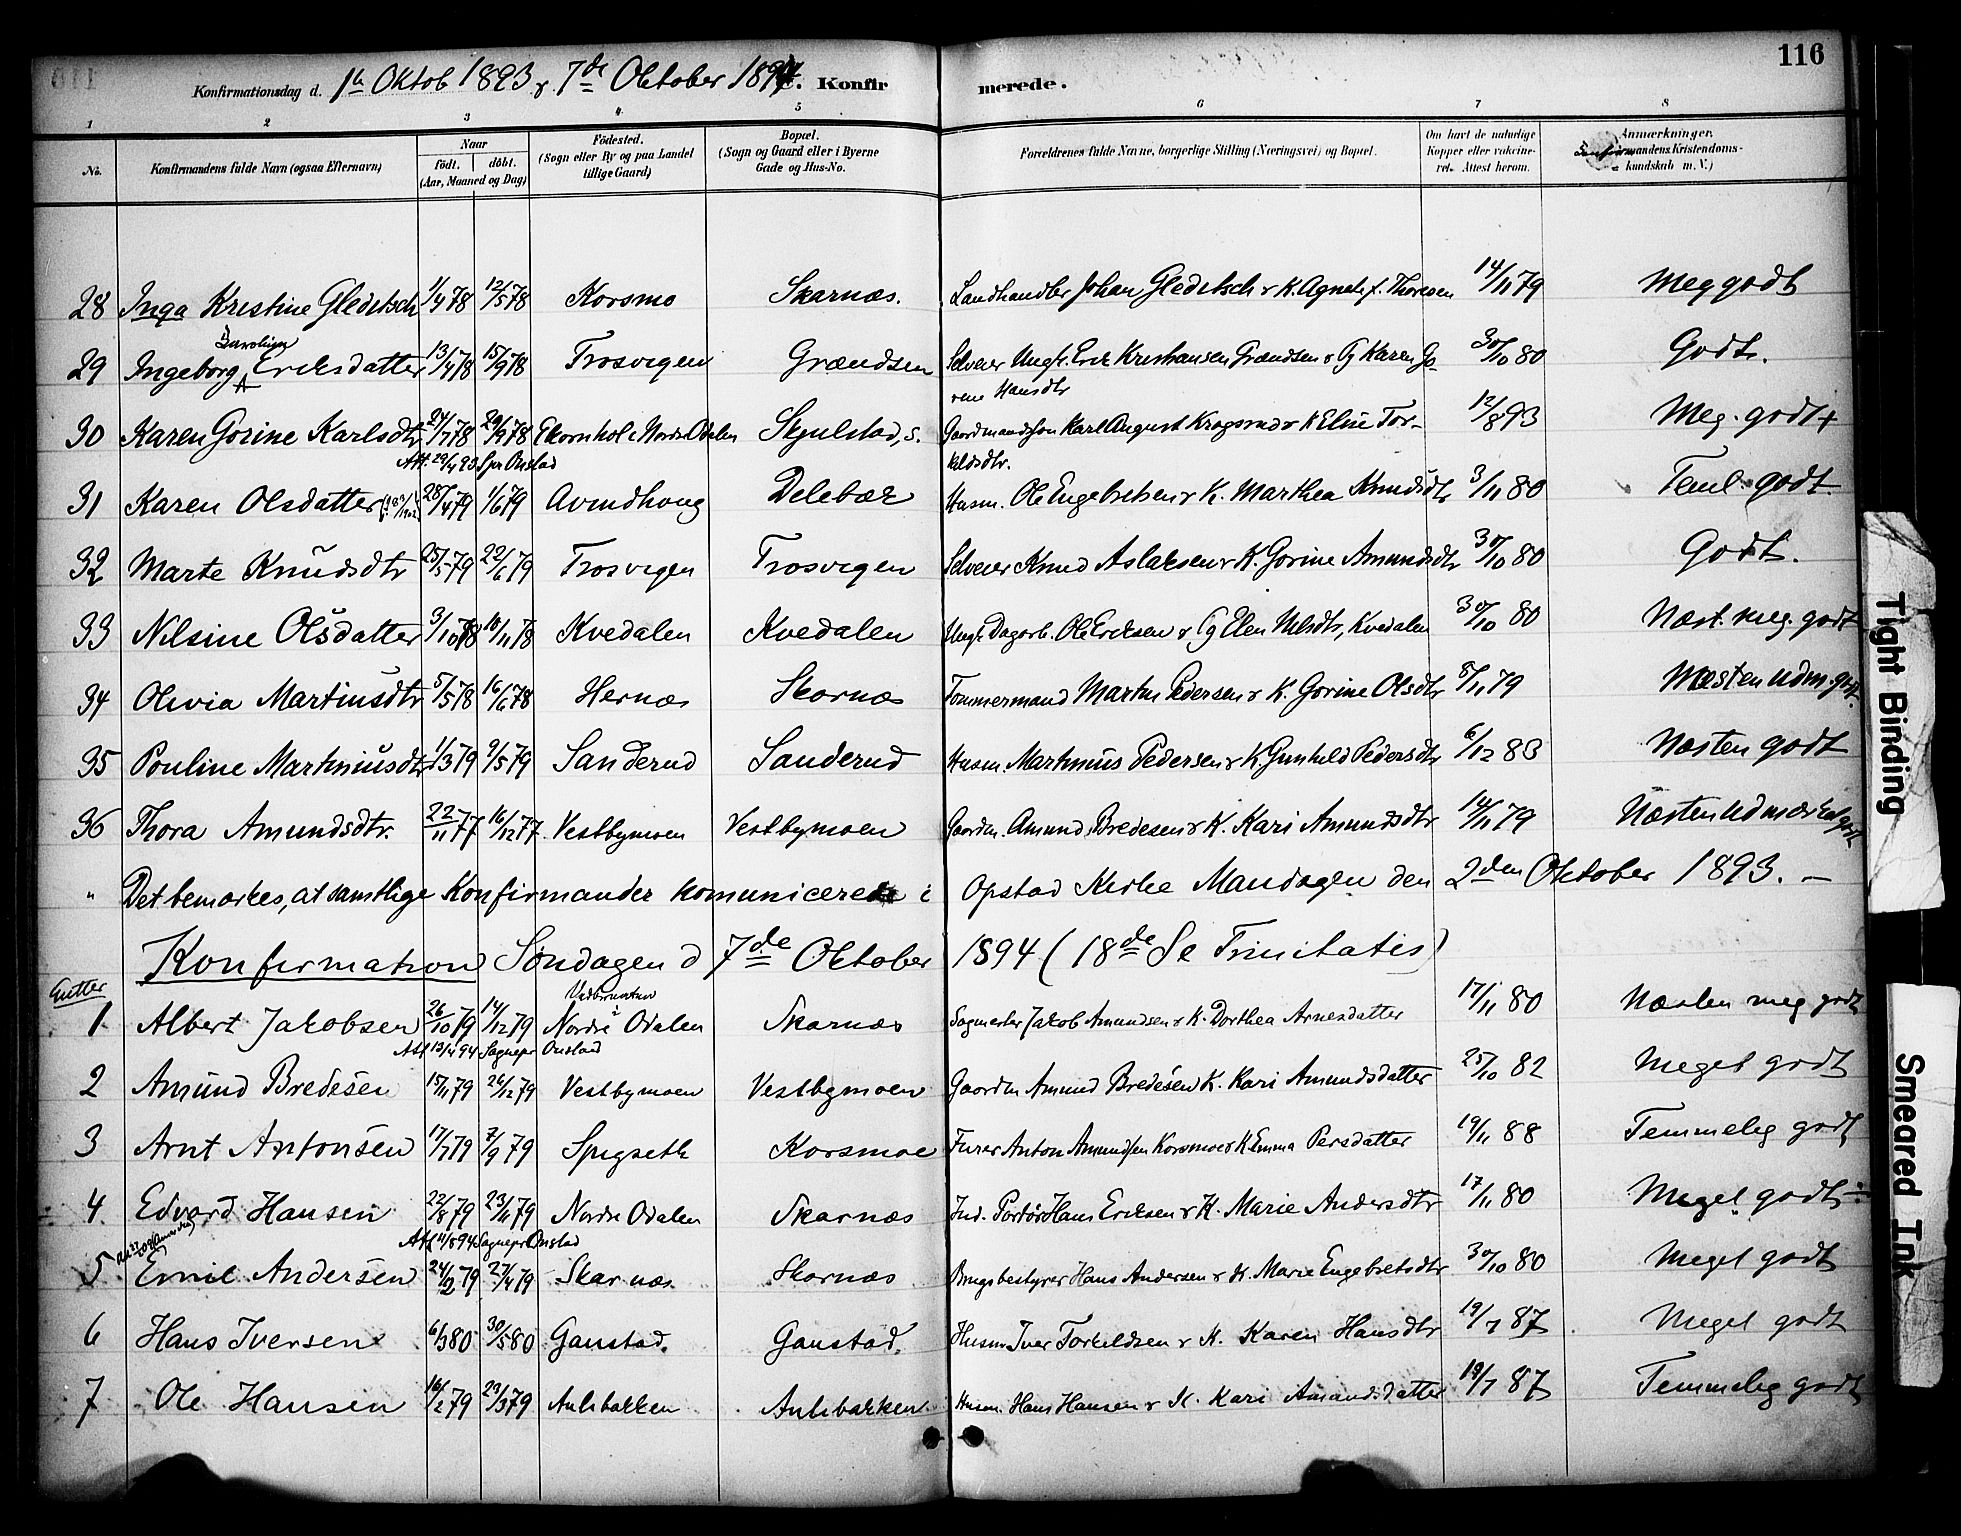 116
Konfirmationsdag d. 1ste Oktob 1893 & 7de Oktober 1894. Konfirmerede.
1 2 3 4 5 6 7 8
No. Konfirmandens fulde Navn (ogsaa Efternavn) Naar födt. döbt. (Aar, Maaned og Dag) Födested. (Sogn eller By og paa Landet tillige Gaard) Bopæl. (Sogn og Gaard eller i Byerne Gade og Hus-No. Forældrenes fulde Navne, borgerlige Stilling (Næringsvei) og Bopæl. Om havt de naturlige Kopper eller vakcineret. Attest herom. Anmærkninger. Konfirmandens Kristendomskundskab m. V.)
28 Inga Kristine Gleditsch 1/4 78 12/5 78 Korsmo Skarnæs. Landhandler Johan Gleditsch & K. Agnete f. Thoresen 14/11 79 Meg godt
29 Ingeborg Karoline Eriksdatter 13/4 78 15/9 78 Trosvigen Grændsen Selveier Ungk. Erik Kristiansen Grændsen & Pg Karen Gorine Hansdtr 30/10 80 Godt.
30 Karen Gorine Karlsdtr 24/7 78 29/9 78 Ekornhol i Nordre Odalen Skjulstad, s. Gaardmandssøn Karl August Kragsrud & K Eline Torkildsdtr. 12/8 93 Meg. godt +
Att. 29/4 93 Spr Onstad
31 Karen Olsdatter 28/4 79 1/6 79 Avindhoug Delebæk Husm. Ole Engebretsen & K. Marthea Knudsdtr 3/11 80 Teml. godt.
32 Marte Knudsdtr 25/5 79 22/6 79 Trosvigen Trosvigen Selveier Knud Aslaksen & K. Gorine Amundsdtr 30/10 80 Godt.
33 Nilsine Olsdatter 3/10 78 10/11 78 Kvedalen Kvedalen Ungk. Dagarb. Ole Eriksen & Pg Elen Nilsdtr, Kvedalen 30/10 80 Næst. meg. godt
34 Olivia Martinsdtr 5/5 78 16/6 78 Hernæs Skarnæs Tømmermand Martin Pedersen & K. Gorine Olsdtr 8/11 79 Næsten udm. godt.
35 Pouline Martiniusdtr 1/3 79 9/5 79 Sanderud Sanderud Husm. Martinius Pedersen & K. Gunhild Pedersdtr 6/12 83 Næsten godt
36 Thora Amundsdtr. 22/11 77 16/12 77. Vestbymoen Vestbymoen Gaardm. Amund Bredesen & K. Kari Amundsdtr 14/11 79 Næsten udmærket godt
" Det bemærkes, at samtlige Konfirmander komunicerede i Opstad Kirke Mandagen den 2den Oktober 1893. —
Konfirmation Søndagen d 7de Oktober 1894 (18de Se Trinitatis)
Gutter
1. Albert Jakobsen 26/10 79 14/12 79 Nordre Odalen Skarnæs Sagmester Jakob Amundsen & K. Dorthea Arnesdatter 17/11 80 Næsten meg godt
Att 13/4 94 Sognepr Onstad
2 Amund Bredesen 15/11 79 26/12 79 Vestbymoen Vestbymoen Gaardm Amund Bredesen K. Kari Amundsdatter 25/10 82 Meget godt
3 Arnt Antonsen 17/7 79 7/9 79 Spigseth Korsmoe Furer Anton Amundsen Korsmoe & K. Emma Persdatter 19/11 88 Temmelig godt
4. Edvard Hansen 22/8 79 23/11 79 Nordre Odalen Skarnæs Ind. Portør Hans Eriksen & K. Marie Andersdtr 17/11 80 Meget godt ÷
Att 11/8 94 Sognepr Onstad
5 Emil Andersen 24/2 79 27/4 79 Skarnæs Skarnæs Brugsbestyrer Hans Andersen & K. Marie Engebretsdtr 30/10 80 Meget godt
6 Hans Iversen 6/3 80 30/5 80 Ganstad. Ganstad. Husm Iver Torkildsen & K. Karen Hansdtr 19/7 87 Meget godt
7 Ole Hansen 16/2 79 23/3 79 Aulibakken Aulibakken Husm. Hans Hansen & K. Kari Amundsdatter 19/7 87 Temmelig godt
Tight Binding
Smeared Ink